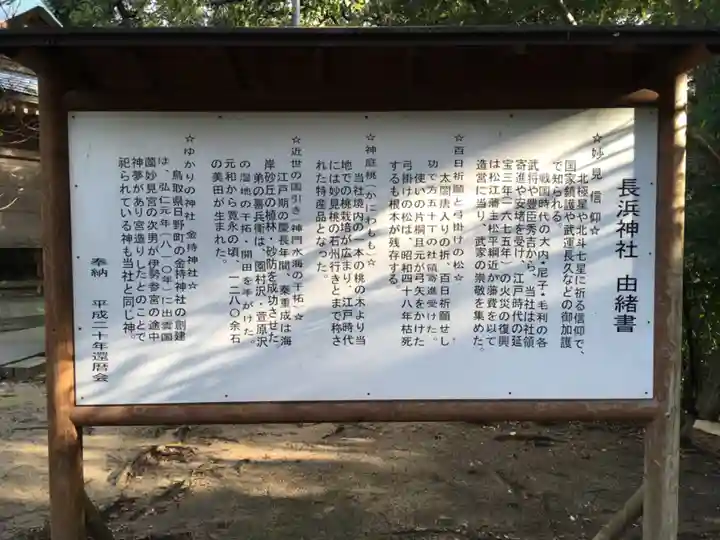 長浜神社 由緒書
☆妙見信仰☆
北極星や北斗七星に祈る信仰で、
国家鎮護や武運長久などの御加護
で知られる。
戦国時代の大内・尼子・毛利の各
武将や豊臣秀吉から、当社は社領
寄進や安堵を受け、江戸時代の延
宝三年(一六七五年)の火災の復興
は松江藩主松平綱近が藩費を以て
造営に当り、武家の崇敬を集めた。
☆百日祈願と弓掛けの松☆
太閤唐入りの折、百日祈願せし
功で方五十丁の社領寄進受けた。
使いの片桐且元が弓矢をかけた
弓掛けの松は、昭和四十八年枯死
するも根本が残存する。
☆神庭桃(かにわもも)☆
当社境内の一本の桃の木より当
地での桃栽培が広まり、江戸時代
には妙見桃の石州行きとまで称さ
れた特産品となった。
☆近世の国引き「神門水海の干拓」☆
江戸期の慶長年間、秦重成は海
岸砂丘の植林・砂防を成功させた。
弟の喜兵衛は、園村沢・菅原沢
の湿地の干拓・開田を手がけた。
元和から寛永の頃、一二八〇余石
の美田が生まれた。
☆ゆかりの神社 金持神社☆
鳥取県日野町の金持神社の創建
は、弘仁元年(八一〇年)に出雲国
薗妙見宮の次男が伊勢参宮の途中
神夢があり宮造りしたとのことで
祀られている神も当社と同じ神。
奉納 平成二十年還暦会